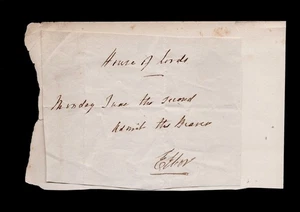 House of Lords
Monday June the second
Admit the Bearer